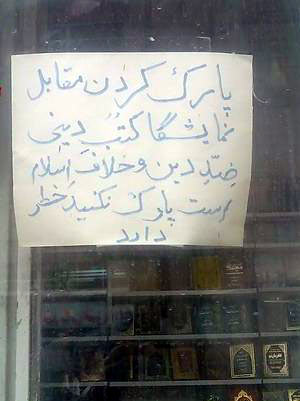 پارک کردن مقابل
نمایشگا کتبِ دینی
ضِدِّ دین و خلاف اسلام
است پارک نکنید خطر
دارد